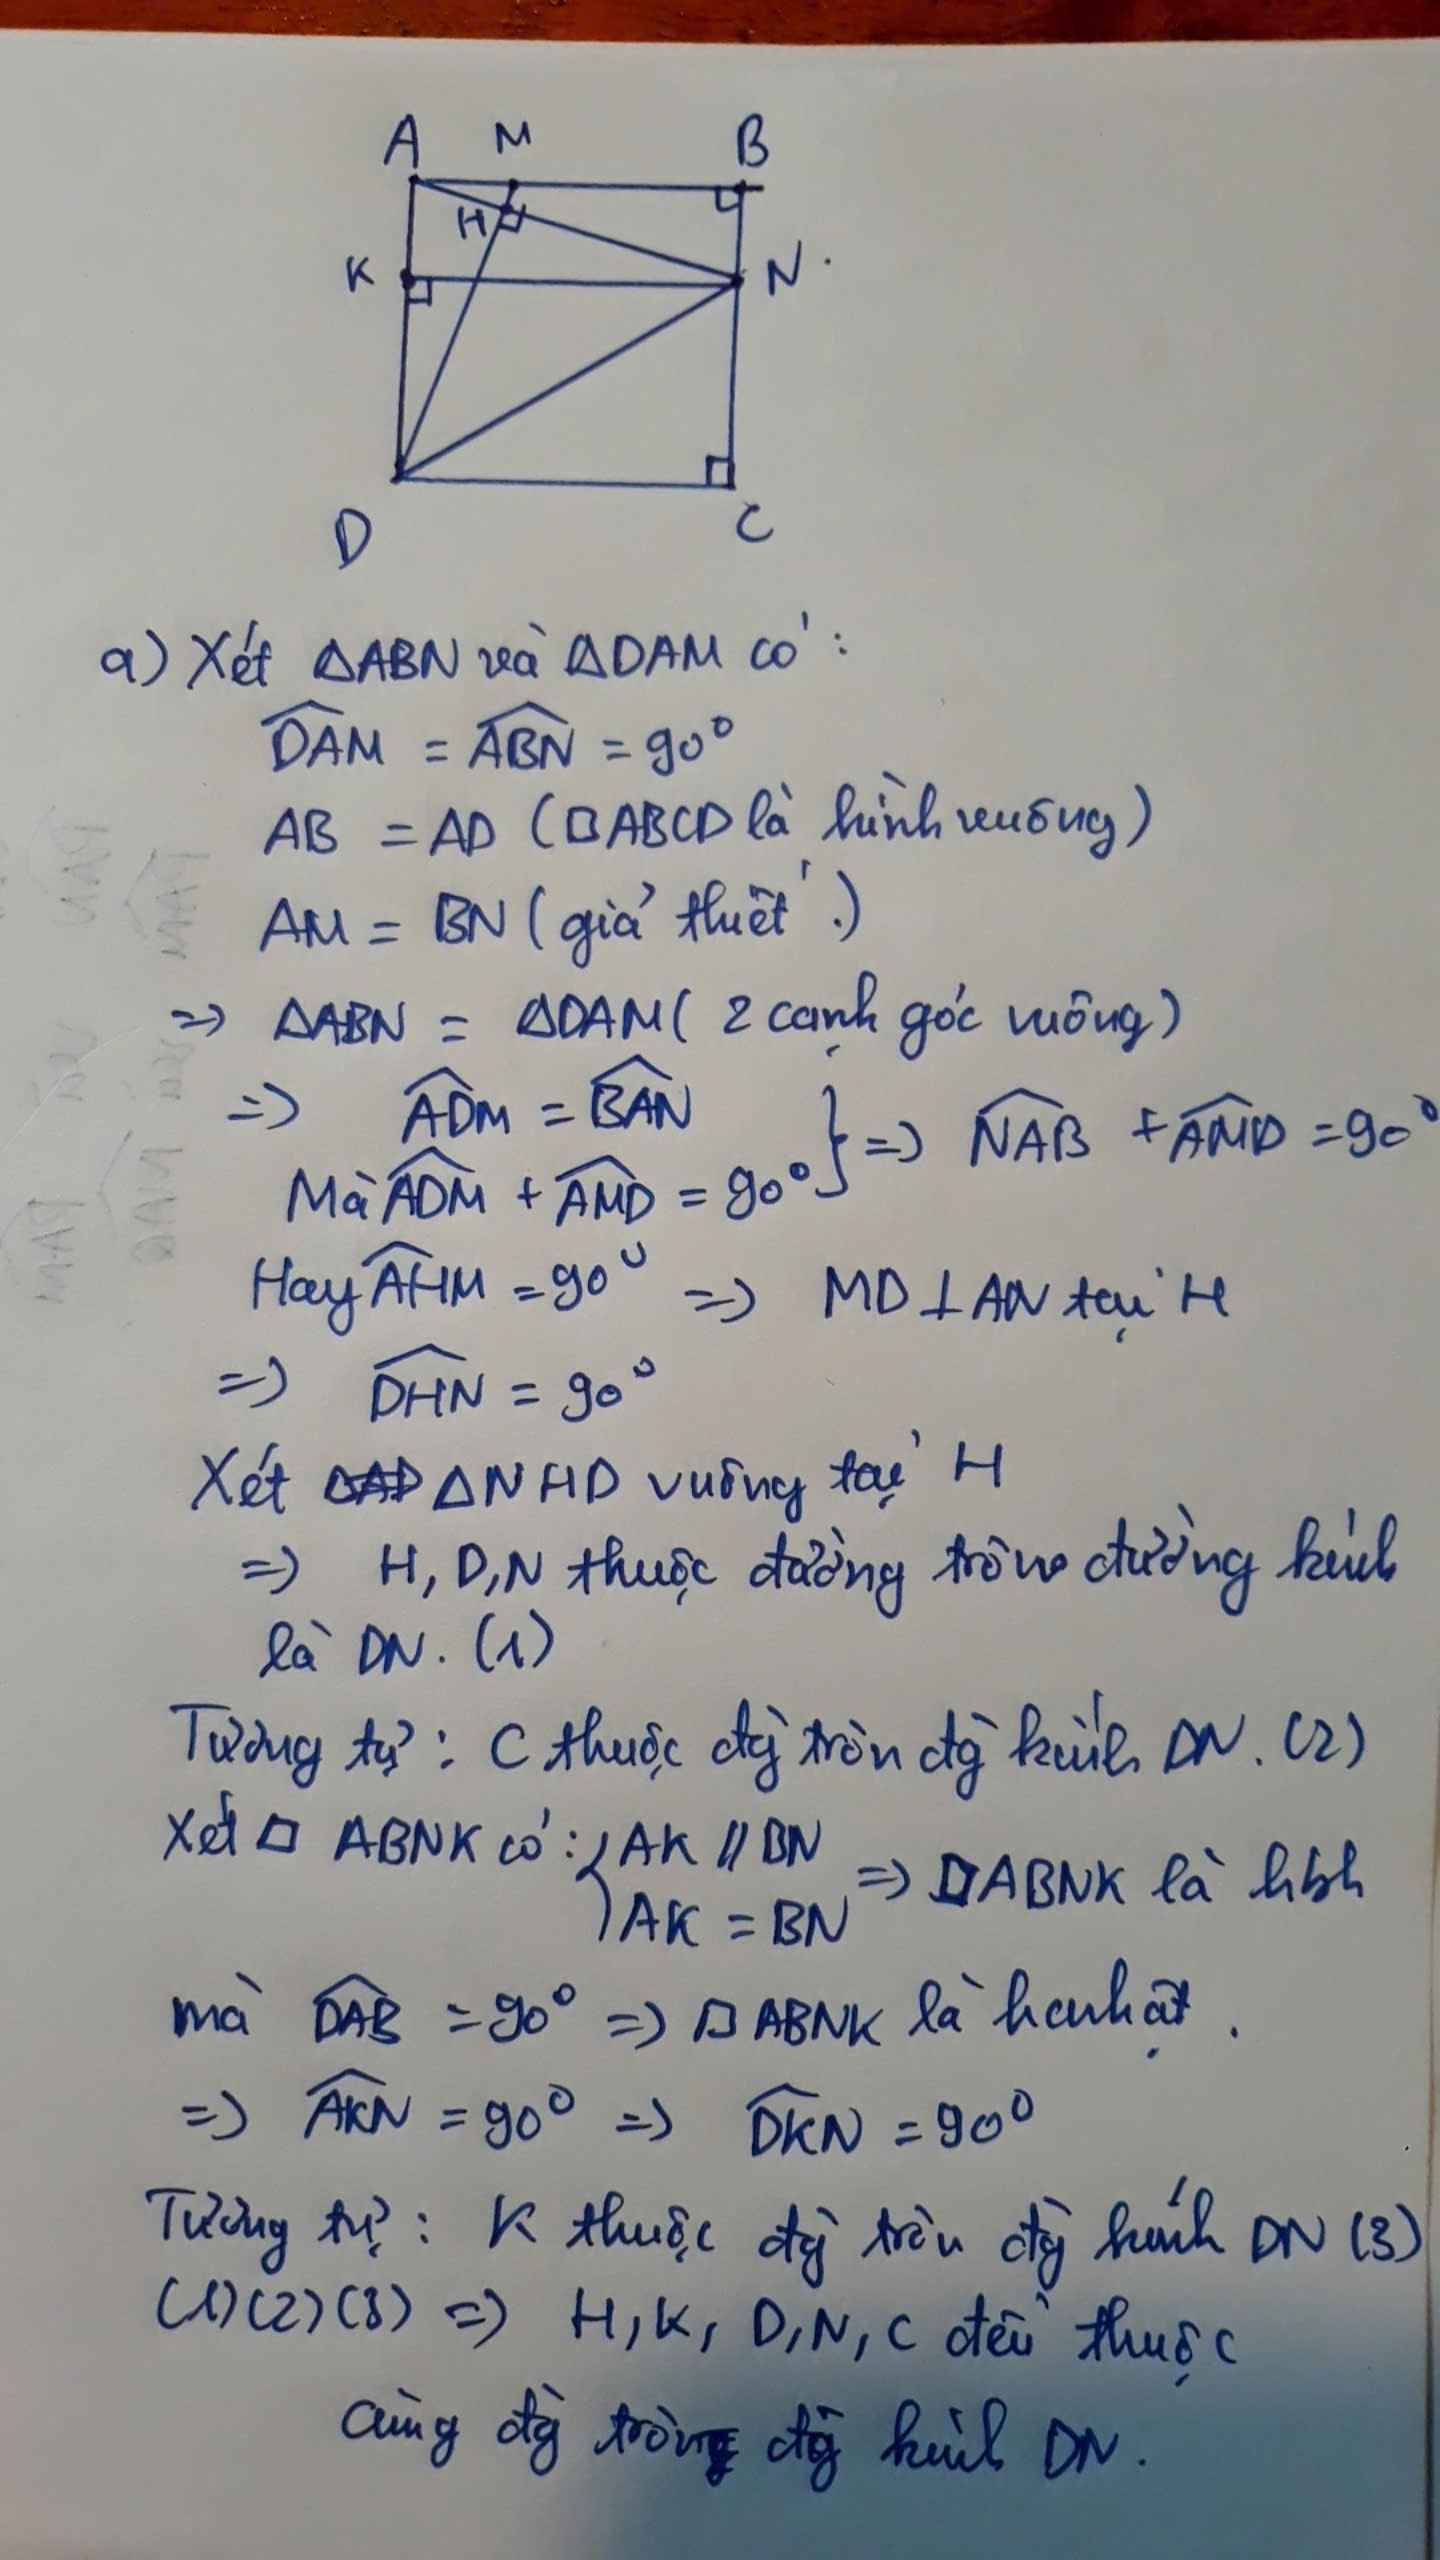 A M B
H
K N
D C
a) Xét △ABN và △DAM có:
DAM = ABN = 90°
AB = AD (□ABCD là hình vuông)
AM = BN (giả thiết.)
=> △ABN = △DAM (2 cạnh góc vuông)
=> ADM = BAN
Mà ADM + AMD = 90° } => NAB + AMD = 90°
Hay AHM = 90° => MD ⊥ AN tại H
=> DHN = 90°
Xét △NHD vuông tại H
=> H, D, N thuộc đường tròn đường kính
là DN. (1)
Tương tự: C thuộc đg̀ tròn đg̀ kính DN. (2)
Xét □ ABNK có: { AK // BN
AK = BN => □ABNK là hbh
mà DAB = 90° => □ABNK là hcnhật.
=> AKN = 90° => DKN = 90°
Tương tự: K thuộc đg̀ tròn đg̀ kính DN (3)
(1)(2)(3) => H, K, D, N, C đều thuộc
cùng đg̀ tròn đg̀ kính DN.